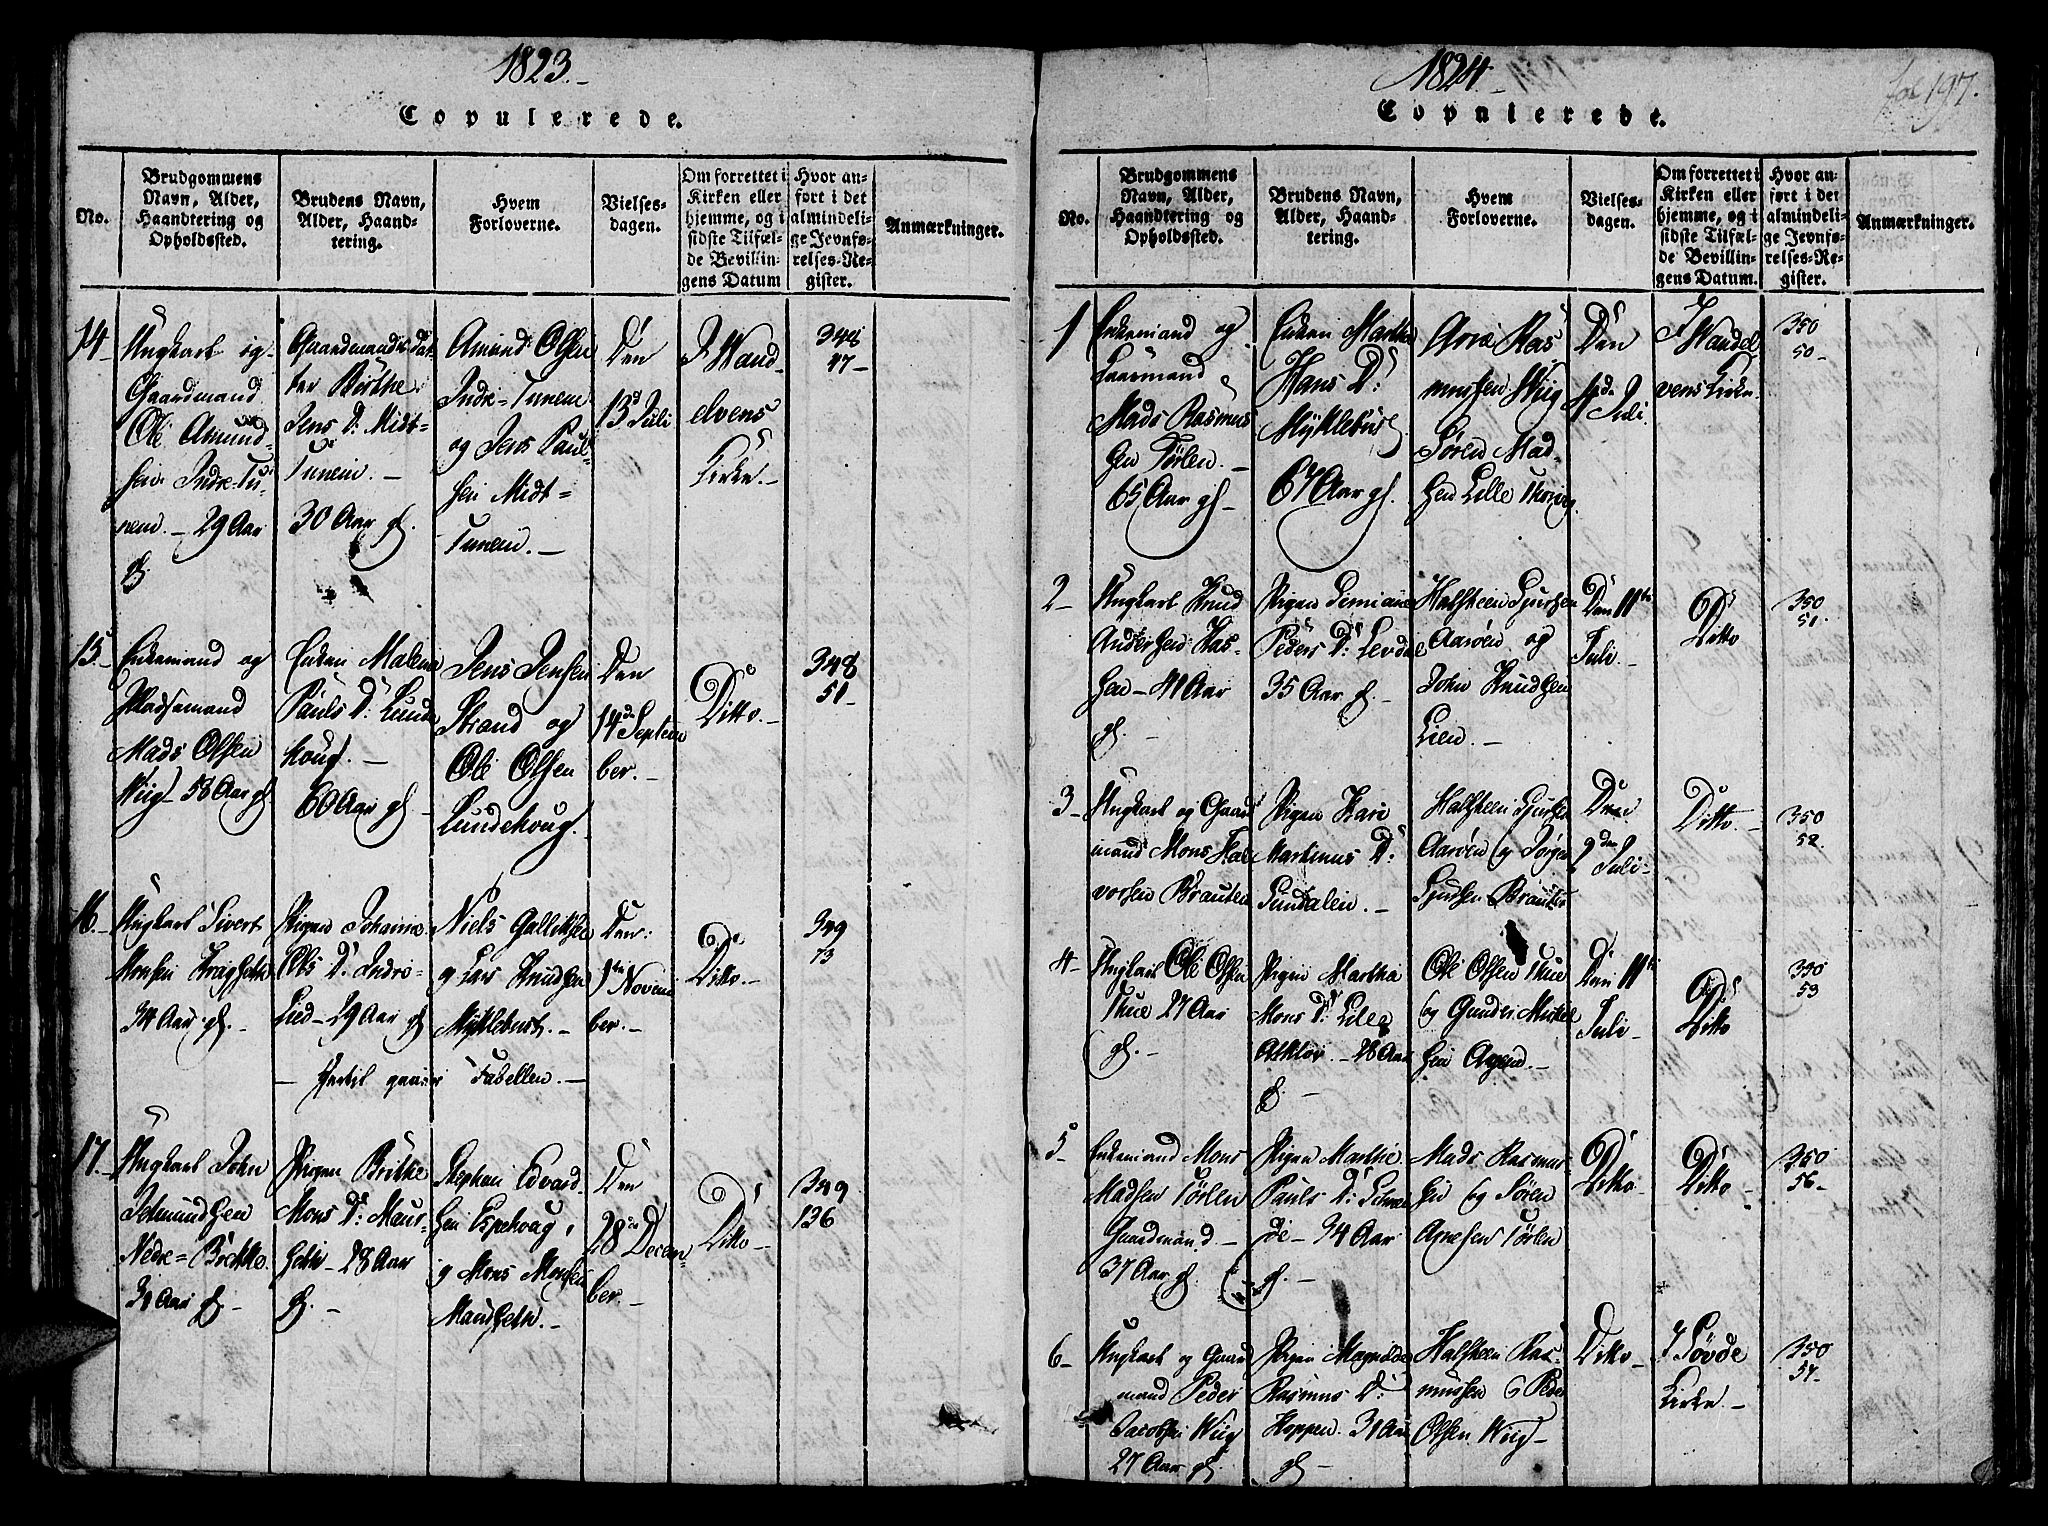 1823.
Copulerede.
No.
Brudgommens
Navn, Alder,
Haandtering og
Opholdssted.
Brudens Navn,
Alder, Haand-
tering.
Hvem
Forloverne.
Vielses-
dagen.
Om forrettet i
Kirken eller
hjemme, og i
sidste Tilfæl-
de Bevillin-
gens Datum
Hvor an-
ført i det
almindeli-
ge Jevnfø-
relses-Re-
gister.
Anmærkninger.
14.
Ungkarl og
Gaardmand
Ole Amund-
sen Indre-Tu-
nem. - 29 Aar
gl
Gaardmands Dat-
ter Birthe
Jens D: Midt-
Tunem. -
30 Aar gl.
Amund Olsen
Indre-Tunem
og Jens Paul-
sen Midt-
Tunem. -
Den
13d Juli
I Vand-
elvens
Kirke. -
348
47 -
15.
Enkemand og
Pladsemand
Mads Olsen
Wiig - 58 Aar gl
Enken Malene
Pauls D: Lunde
houg. -
60 Aar gl. -
Jens Jensen
Strand og
Ole Olsen
Lundehoug.
Den
14de Septem
ber. -
Ditto. -
348
51 -
16.
Ungkarl Sivert
Monsen Kragseth
34 Aar gl. -
Pigen Johanne
Ols D: Indre-
Lied - 29 Aar gl
Niels Gulliksen
og Lars Knudsen
Myklebust. -
Den
1ste Novem
ber. -
Ditto. -
349
73
- Hertil gaaer Tabellen. -
17.
Ungkarl John
Iehmundsen
Nedre-Birkke
31 Aar gl -
Pigen Brithe
Mons D: Maur-
seth - 28 Aar
gl. -
Stephen Edvard-
sen Espehoug,
og Mons Monsen
Maurseth. -
Den
28de Decem-
ber. -
Ditto -
349
136
1824.
fol 197.
Copulerede.
No.
Brudgommens
Navn, Alder,
Haandtering og
Opholdssted.
Brudens Navn,
Alder, Haand-
tering.
Hvem
Forloverne.
Vielses-
dagen.
Om forrettet i
Kirken eller
hjemme, og i
sidste Tilfæl-
de Bevillin-
gens Datum.
Hvor an-
ført i det
almindeli-
ge Jevnfø-
relses-Re-
gister.
Anmærkninger.
1
Enkemand og
Mads Rasmus
sen Tørlen. -
65 Aar gl -
Enken Marthe
Hans D:
Myklebust.
67 Aar gl.
Arne Ras
mussen Wiig
Søren Mad-
sen Lille
Den
4de Juli.
I Vandel
vens Kirke.
350
50 -
2 -
Ungkarl Knud
Andersen Has-
sen - 41 Aar
gl. -
Pigen
Peders D: Levdal
35 Aar gl. -
Halsteen Sjursen
Aarøen og
John Knudsen
Lien. -
Den 11te
Juli. -
Ditto
350
51.
3 -
Ungkarl og Gaard
mand Mons Hal
vorsen Brauten
Pigen Kari
Martinus D:
Sundalen. -
Halsteen Sjursen
Aarøen og Jørgen
Sjursen Brauten
Den
9de Juli -
Ditto. -
350
52.
4 -
Ungkarl Ole Olsen
Thue 27 Aar
gl. -
Pigen Martha
Mons D: Lille
- 28 Aar
gl. -
Ole Olsen Thue
og Gunder Mikkel
sen Aasen. -
Den 11te
Juli
Ditto
350
53
5 -
Enkemand Mons
Madsen Tørlen
Gaardmand -
37 Aar gl.
Pigen Marthe
Pauls D:
de - 34 Aar
gl. -
Mads Rasmus
sen og Søren
Tørlen
Ditto.
Ditto -
350
56 -
6 -
Ungkarl og Gaard
mand Peder
Jacobsen Wiig
27 Aar gl.
Pigen Magnilde
Rasmus D:
Hoppen. 31 Aar
gl -
Halsteen Ras-
mussen og Peder
Olsen Wiig -
Ditto -
I Søvde
Kirke. -
350
57 -